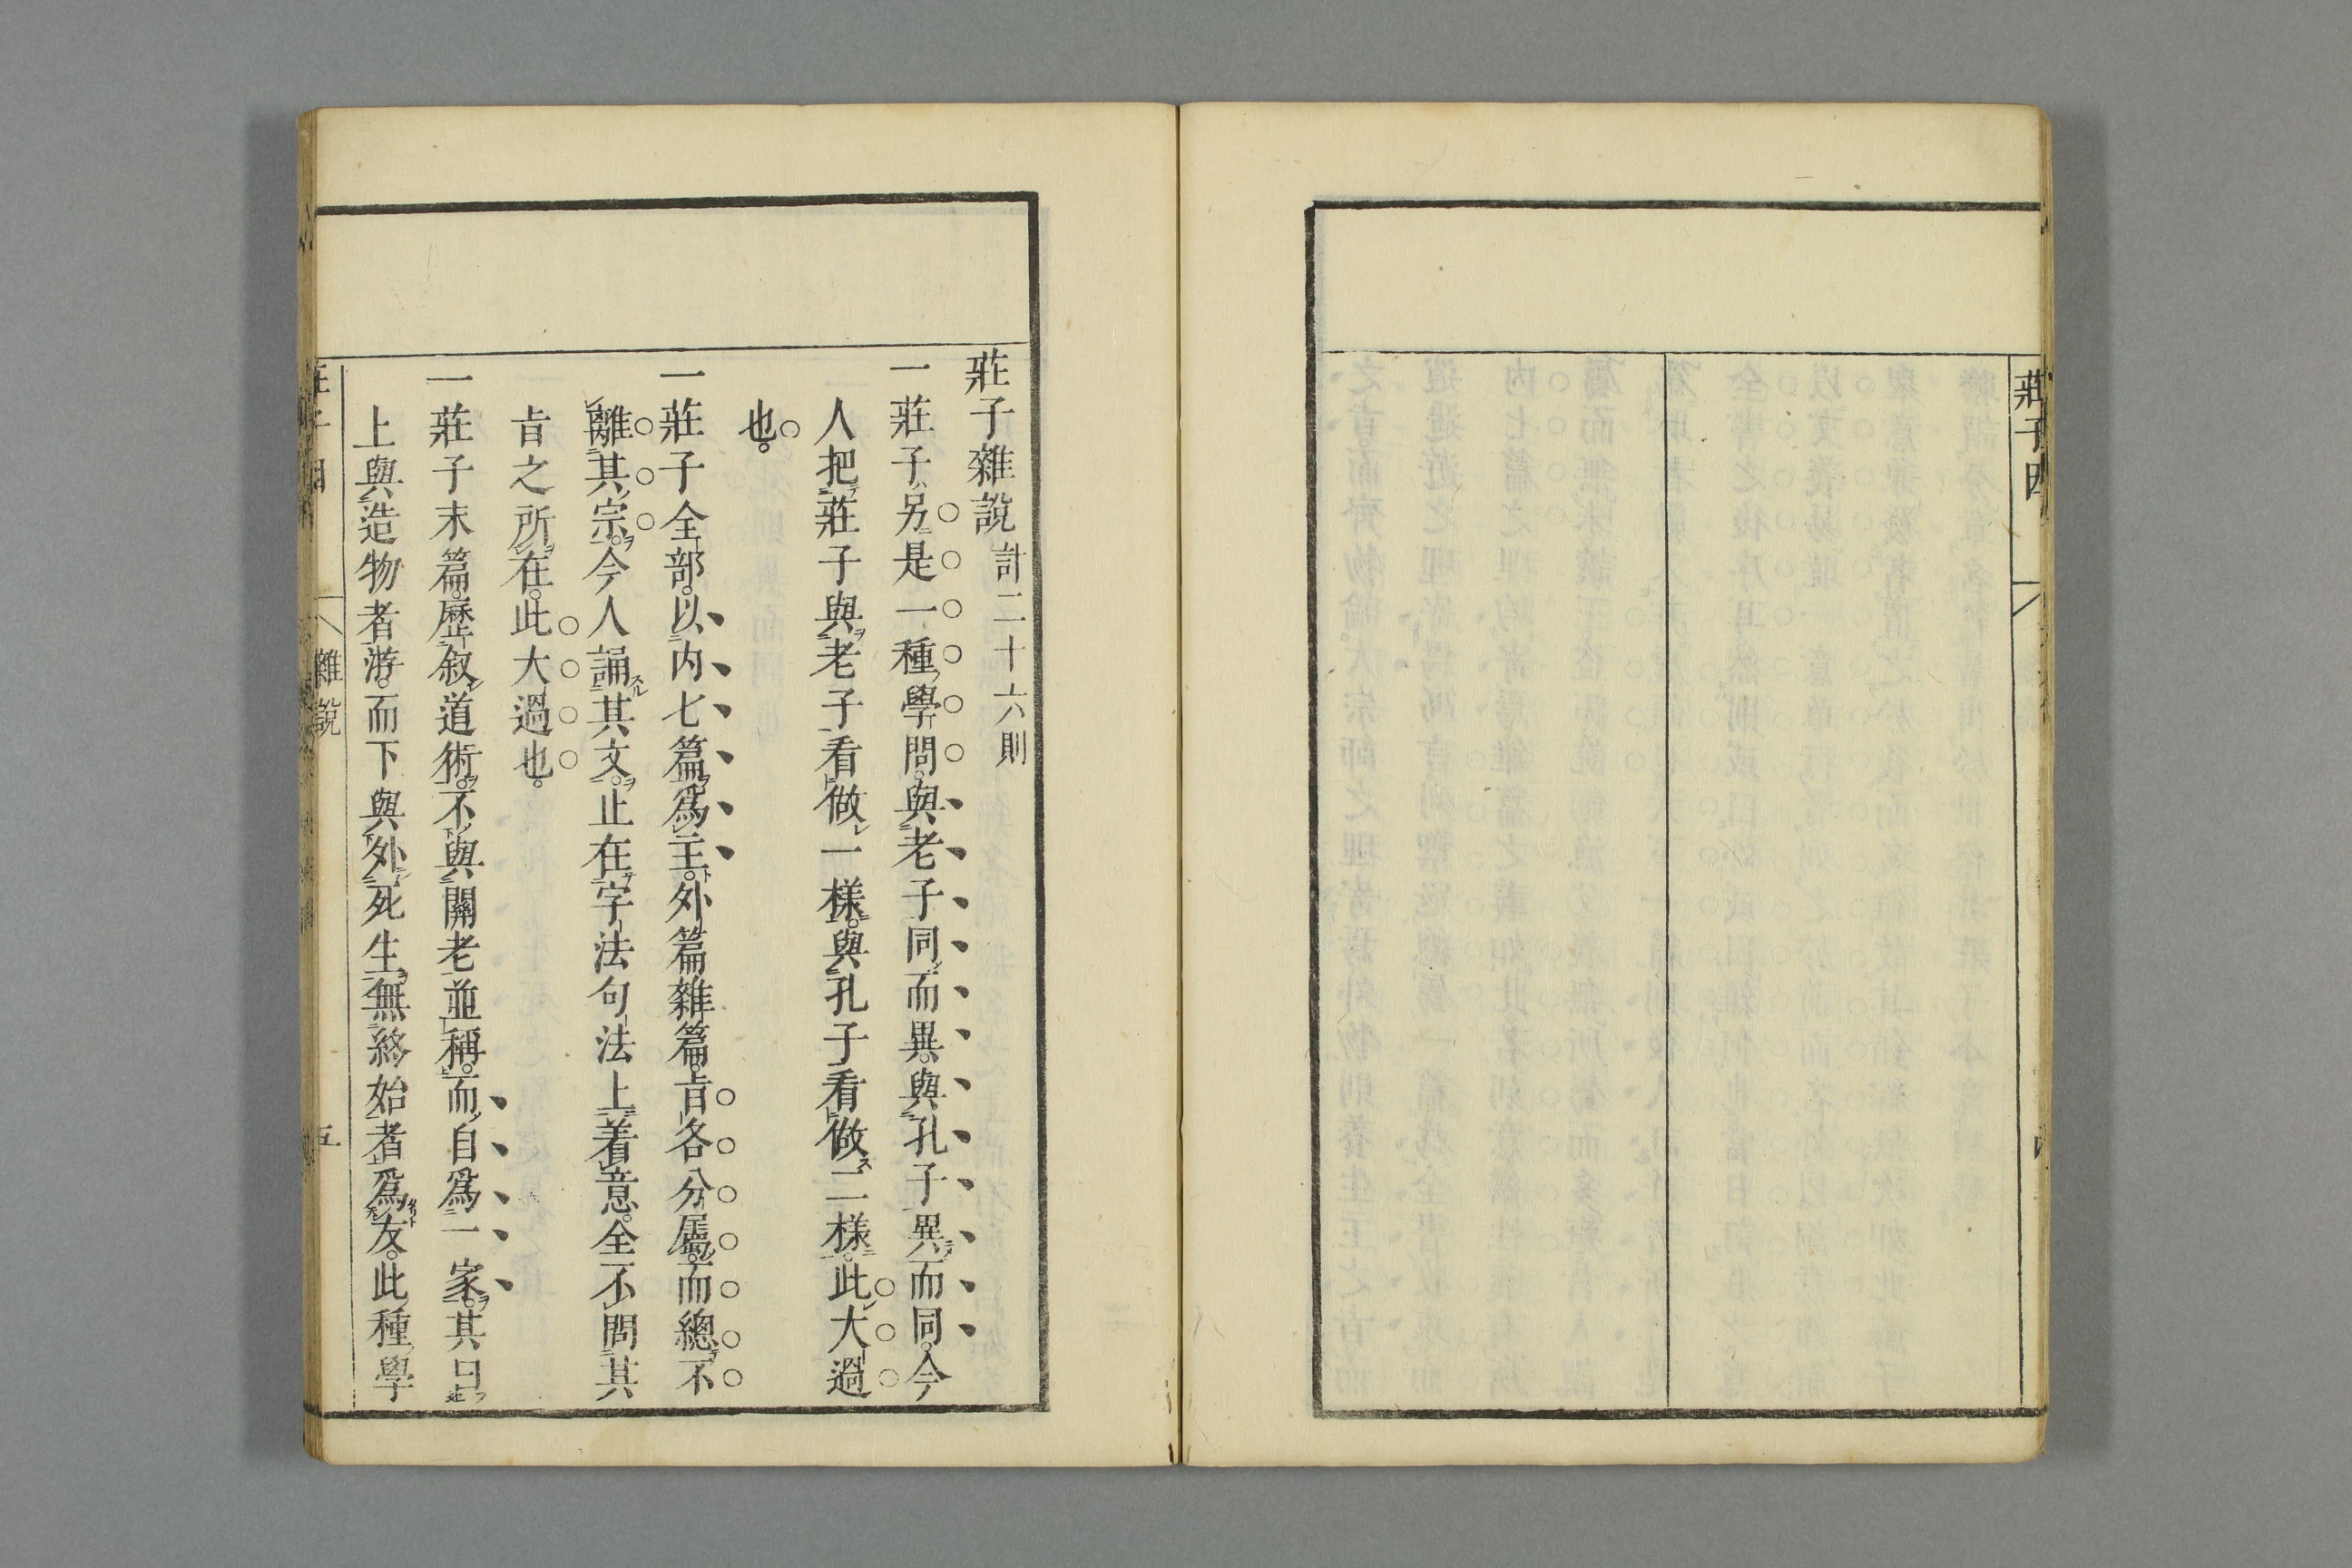 莊子因
莊子雜說 計二十六則
一莊子另是一種學問。與老子同而異。與孔子異而同。今
人把莊子與老子看做一樣。與孔子看做二樣。此大過
也。
一莊子全部。以内七篇爲主。外篇雜篇。㫖各分屬。而總不
離其宗。今人誦其文。止在字法句法上着意。全不問其
㫖之所在。此大過也。
一莊子末篇。歷叙道術。不與關老並稱。而自爲一家。其曰
上與造物者游。而下與外死生無終始者爲友。此種學
莊子因 雜說 五